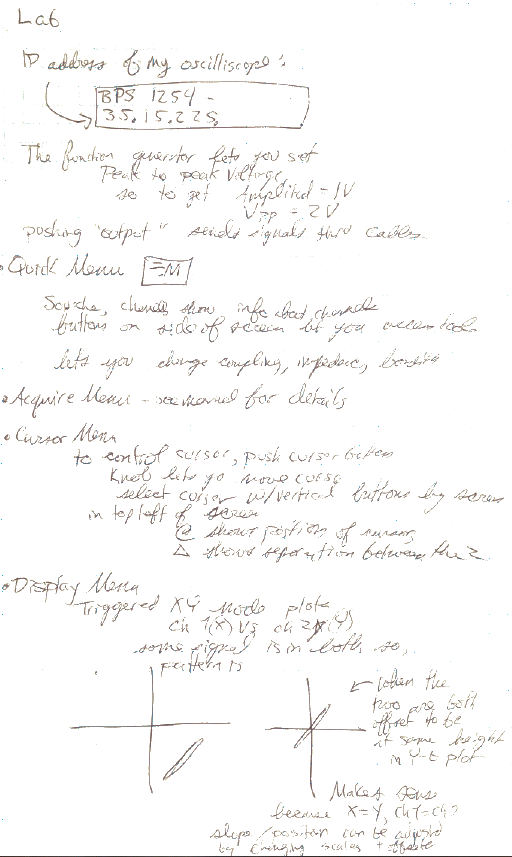 Lab
IP address of my oscilliscope:
BPS 1254 -
35.15.225.
The function generator lets you set
Peak to peak voltage,
so to get Amplited = 1V
Vpp = 2V
pushing "output" sends signals thru cables.
• Quick Menu ≡M
channels show info about channels
buttons on side of screen let you access tools
lets you change coupling, impedenc,
• Acquire Menu - see manual for details
• Cursor Menu
to control cursor, push cursor button
Knob lets yo move curso
select cursor w/vertical buttons by screen
in top left of screen
@ shows position of cursor,
Δ shows separation between the 2
• Display Menu
Triggered XY mode plots
ch 1(X) Vs ch 2 (Y)
same signal is in both, so,
pattern is
When the
two are both
offset to be
at same height
in Y-t plot
Makes sense
because X=Y, ch1=ch2
slope/position can be adjusted
by changing scales + offsets